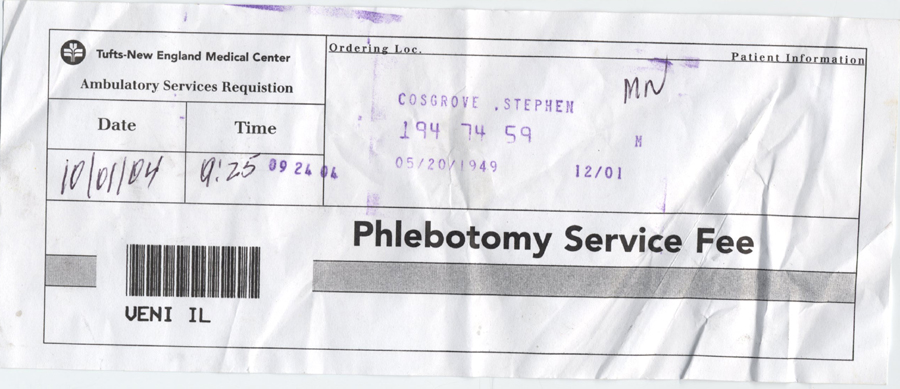 Tufts-New England Medical Center
Ambulatory Services Requistion
Date
Time
10/01/04
9:25
09 24 04
Ordering Loc.
Patient Information
MN
COSGROVE ,STEPHEN
194 74 59
M
05/20/1949
12/01
Phlebotomy Service Fee
VENI IL